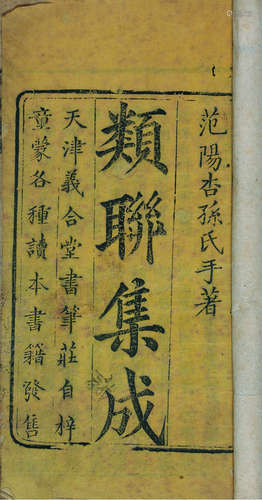 范陽杏孫氏手著
類聯集成
天津義合堂書筆莊自梓
童蒙各種讀本書籍發售